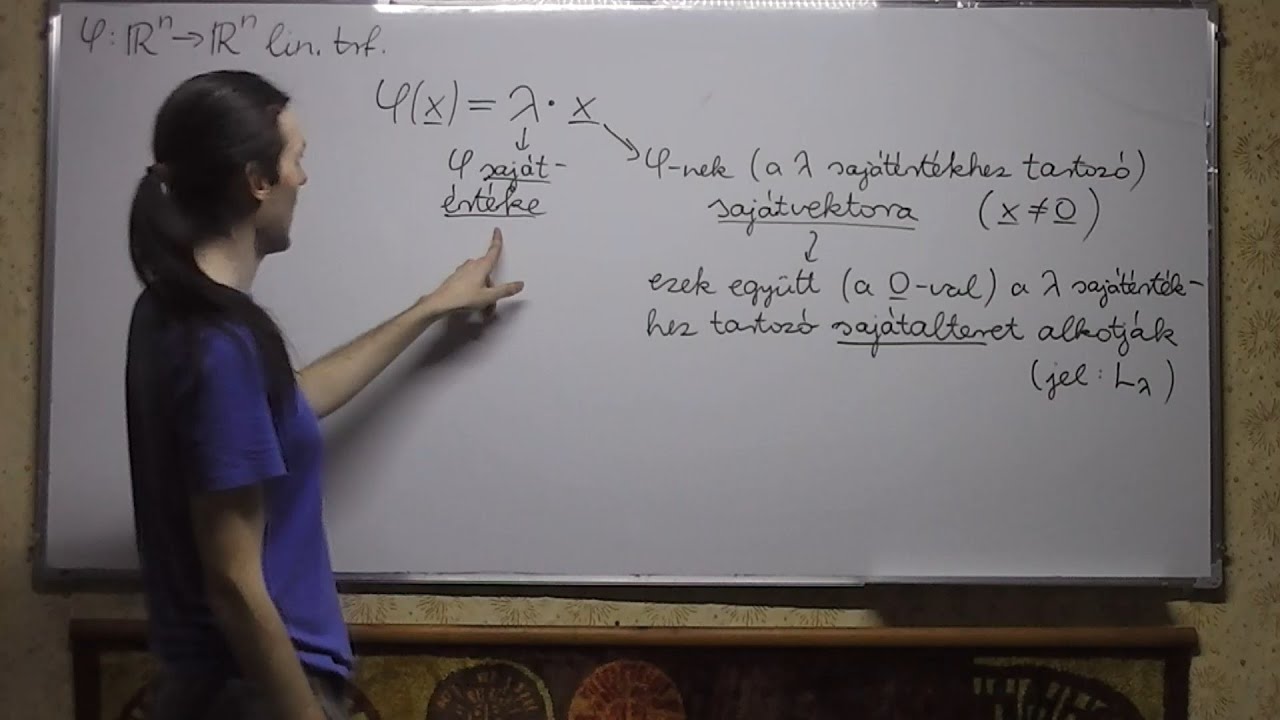 φ: ℝⁿ→ℝⁿ lin. trf.
φ(x) = λ · x
φ saját-
értéke
φ-nek (a λ sajátértékhez tartozó)
sajátvektora (x ≠ 0)
ezek együtt (a 0-val) a λ sajátérték-
hez tartozó sajátalteret alkotják
(jel: L_λ)